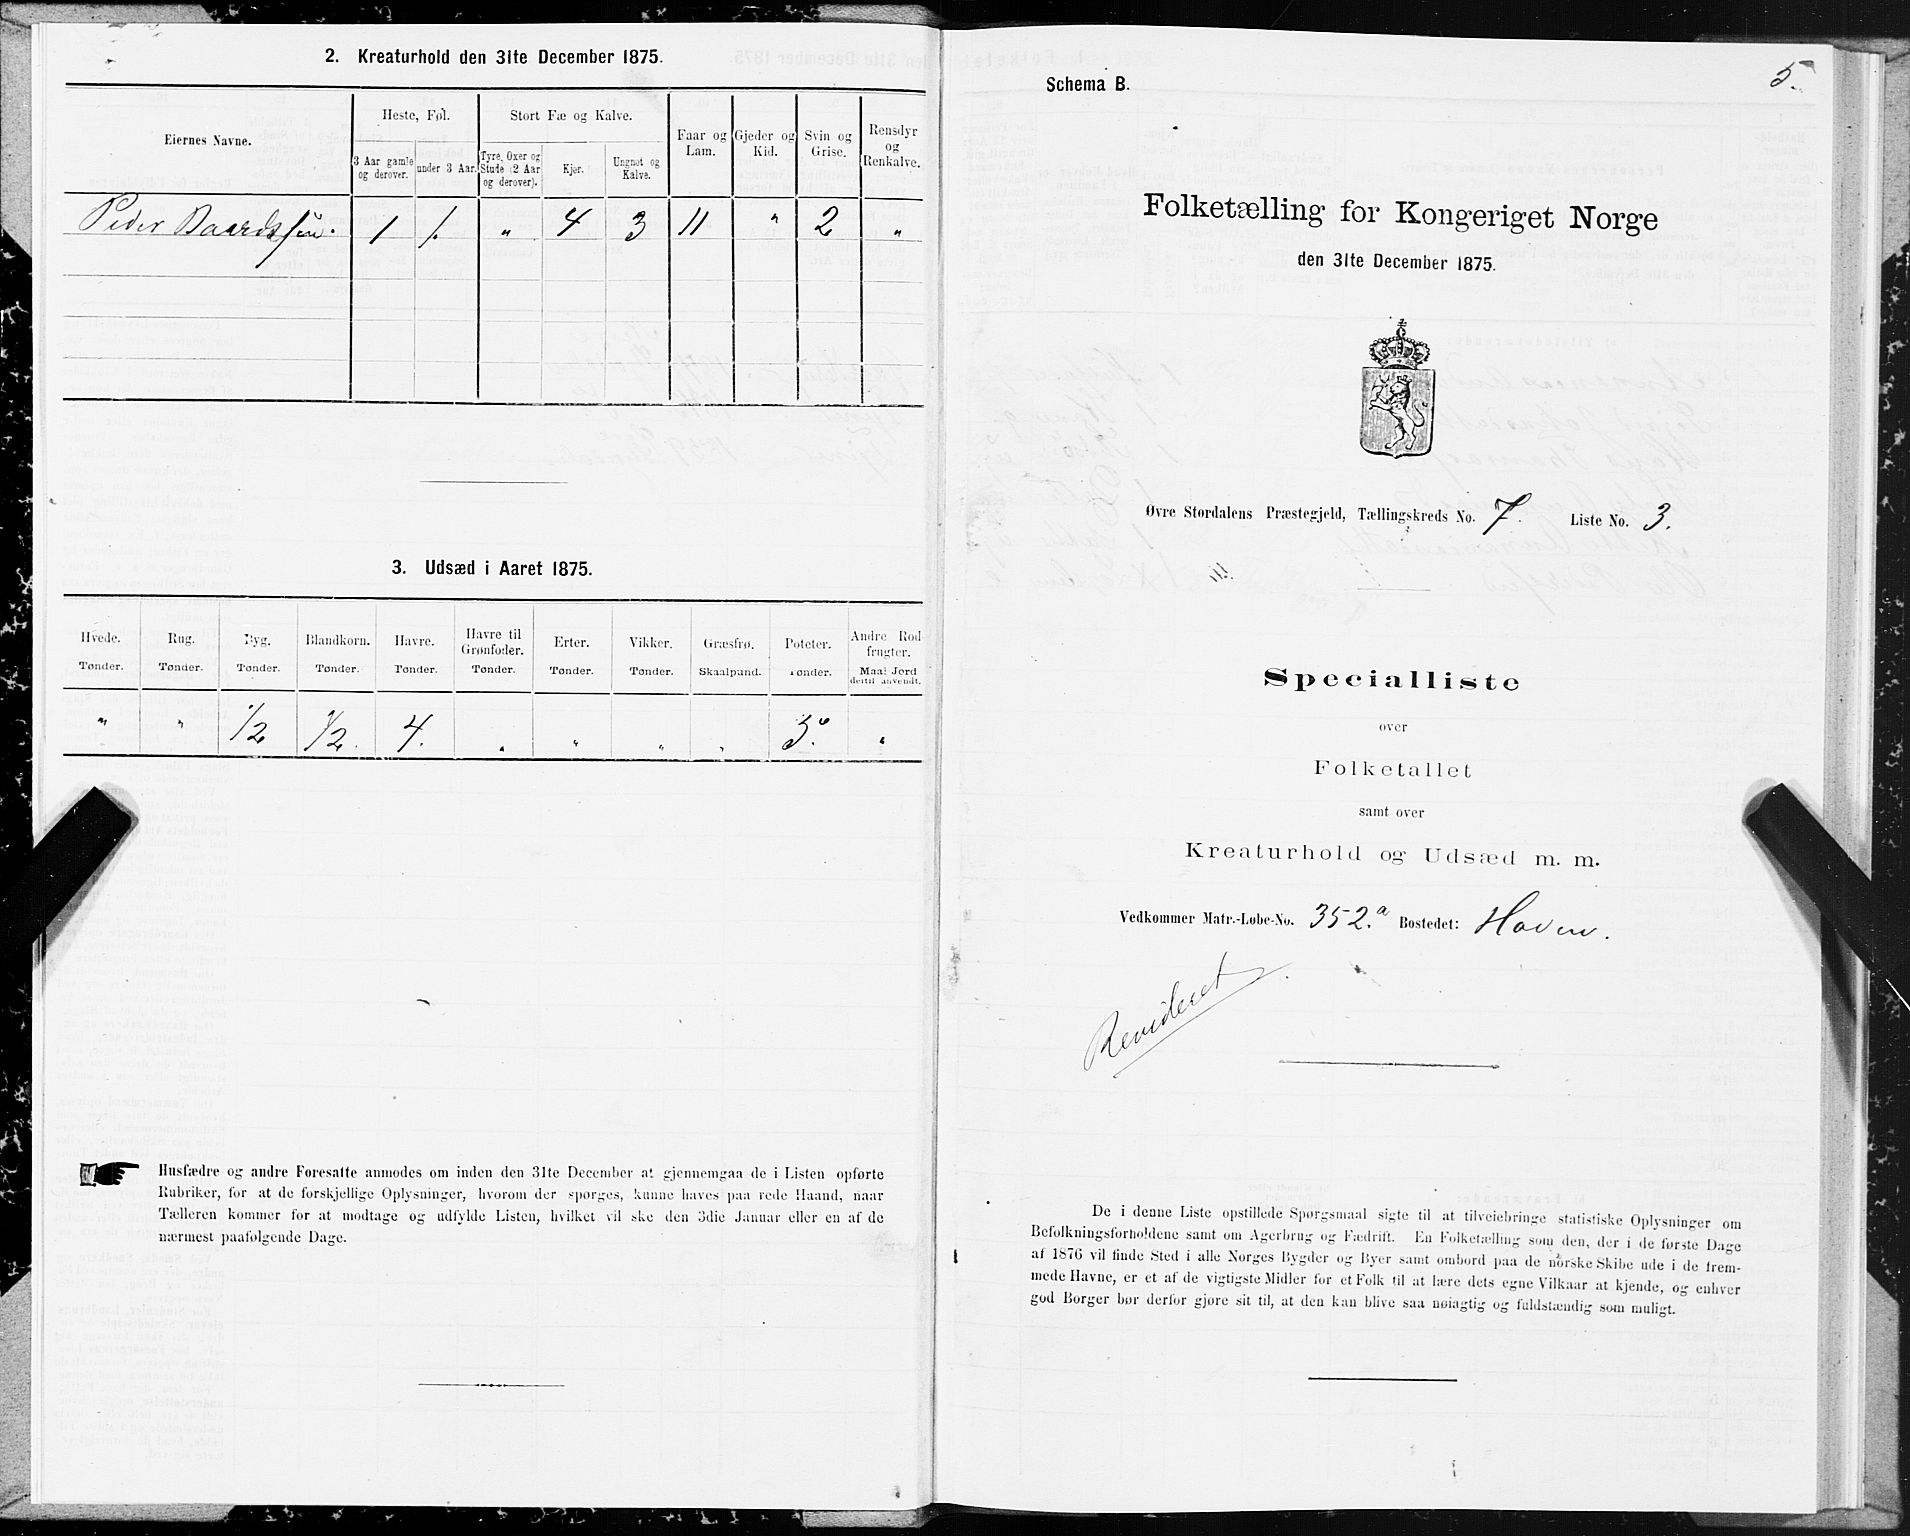 2. Kreaturhold den 31te December 1875.
Eiernes Navne.
Heste, Føl.
Stort Fæ og Kalve.
Faar og Lam.
Gjeder og Kid.
Svin og Grise.
Rensdyr og Renkalve.
3 Aar gamle og derover.
under 3 Aar.
Tyre, Oxer og Stude (2 Aar og derover).
Kjer.
Ungnøt og Kalve.
Peder Baardssen. 1 1. " 4 3 11 " 2 "
3. Udsæd i Aaret 1875.
Hvede. Rug. Byg. Blandkorn. Havre. Havre til Grønfoder. Erter. Vikker. Græsfrø. Poteter. Andre Rodfrugter.
Tønder. Tønder. Tønder. Tønder. Tønder. Tønder. Tønder. Tønder. Skaalpund. Tønder. Maal Jord dertil anvendt.
" " 1/2 1/2. 4. " " " " 3. "
Husfædre og andre Foresatte anmodes om inden den 31te December at gjennemgaa de i Listen opførte
Rubriker, for at de forskjellige Oplysninger, hvorom der spørges, kunne haves paa rede Haand, naar
Tælleren kommer for at modtage og udfylde Listen, hvilket vil ske den 3die Januar eller en af de
nærmest paafølgende Dage.
5.
Schema B.
Folketælling for Kongeriget Norge
den 31te December 1875.
Øvre Stordalens Præstegjeld, Tællingskreds No. 7. Liste No. 3.
Specialliste
over
Folketallet
samt over
Kreaturhold og Udsæd m. m.
Vedkommer Matr.-Løbe-No. 352.a Bostedet: Haven.
Revideret
De i denne Liste opstillede Spørgsmaal sigte til at tilveiebringe statistiske Oplysninger om
Befolkningsforholdene samt om Agerbrug og Fædrift. En Folketælling som den, der i de første Dage
af 1876 vil finde Sted i alle Norges Bygder og Byer samt ombord paa de norske Skibe ude i de frem-
mede Havne, er et af de vigtigste Midler for et Folk til at lære dets egne Vilkaar at kjende, og enhver
god Borger bør derfor gjøre sit til, at den kan blive saa nøiagtig og fuldstændig som muligt.